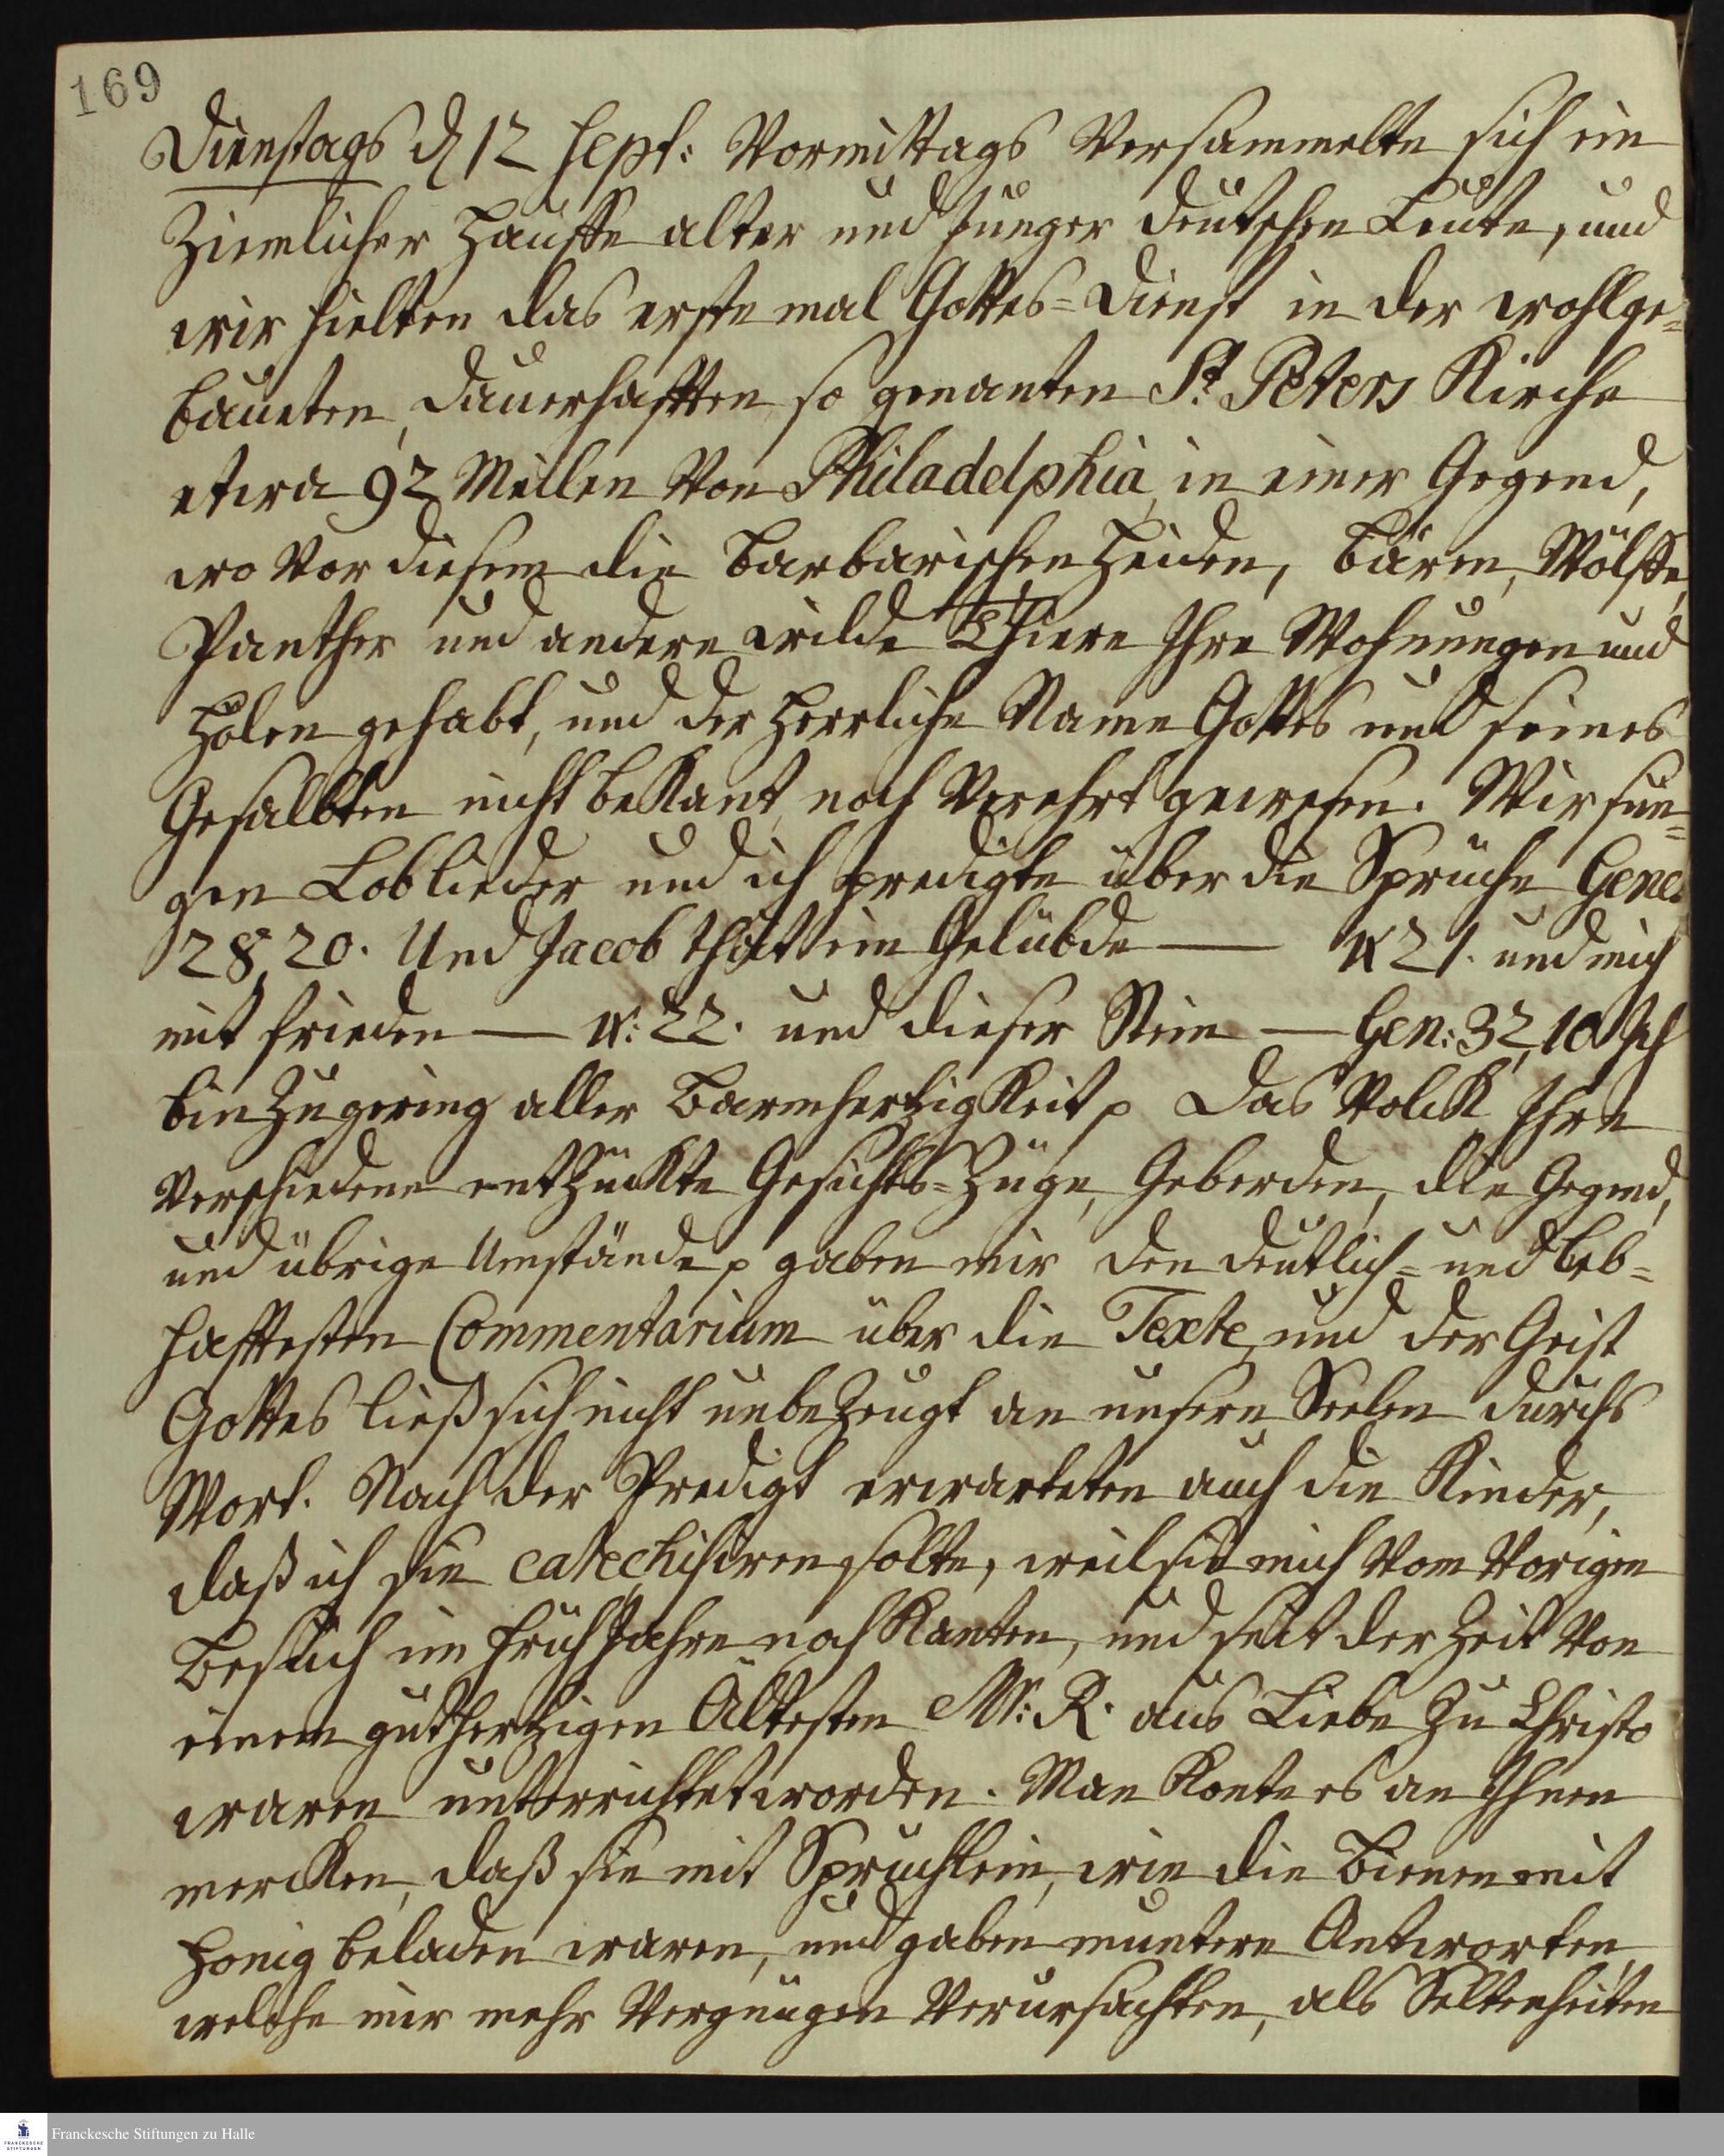 169
Dienstags d 12 Sept: Vormittags Versammelte sich ein
Ziemlicher Hauffe alter und junger deutschen Leute, und
wir hielten das erste mal Gottes=Dienst in der wohlge=
baueten, dauerhafften so genanten St. Peters Kirche
etwa 92 Meilen Von Philadelphia, in einer Gegend,
wo Vor diesem die Barbarischen Heiden, Bären, Wölffe,
Panther und andere wilde Thiere Ihre Wohnungen und
Hölen gehabt, und der Herrliche Name Gottes und seines
Gesalbten nicht bekant, noch Verehrt gewesen. Wir sun=
gen Loblieder und ich predigte über die Sprüche Genes.
28,20. Und Jacob that ein Gelübde — V 21. und mich
mit frieden — V: 22. und dieser Stein — Gen: 32,10 Ich
bin Zu gering aller Barmhertzigkeit p Das Volck, Ihre
Verschiedene entzückte Gesichts=Züge, Geberden, die Gegend,
und übrige Umstände p gaben mir den deutlich= und leb=
hafftesten Commentarium über die Texte, und der Geist
Gottes ließ sich nicht unbezeugt an unsern Seelen durchs
Wort. Nach der Predigt erwarteten auch die Kinder,
daß ich sie catechisiren solte, weil sie mich Vom Vorigen
Besuch im Frühjahre noch kanten, und seit der Zeit Von
einem guthertzigen Ältesten Mr: R. aus Liebe Zu Christo
waren unterrichtet worden. Man konte es an Ihnen
mercken, daß sie mit Sprüchlein, wie die Bienen mit
Honig beladen waren, und gaben muntere Antworten,
welche mir mehr Vergnügen Verursachten, als Seltenheiten
FRANCKESCHE STIFTUNGEN
Franckesche Stiftungen zu Halle